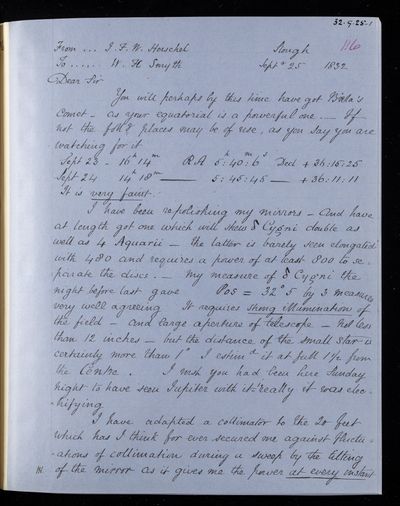 32.9.25.1
From ... J. F. W. Herschel Slough 116
To ...... W. H. Smyth Septr 25 1832
Dear Sir
You will perhaps by this time have got Biela's
Comet - as your equatorial is a powerful one. — If
not the follg places may be of use, as you say you are
watching for it
Sept 23 - 16h 14m RA 5h:40m:6s Decl + 36:15:25
Sept 24 14h 18m — 5:45:45 — + 36:11:11
It is very faint.
I have been repolishing my mirrors - and have
at length got one which will shew δ Cygni double as
well as 4 Aquarii — the latter is barely seen elongated
with 480 and requires a power of at least 800 to se-
parate the discs. — My measure of δ Cygni the
night before last gave Pos = 32° 5 by 3 measures
very well agreeing It requires strong illumination of
the field - and large aperture of telescope - not less
than 12 inches - but the distance of the small star is
certainly more than 1" I estimd it at full 1½ from
the Centre. I wish you had been here Sunday
night to have seen Jupiter with it really it was elec-
-trifying
I have adapted a collimator to the 20 feet
which has I think for ever secured me against fluctu-
-ations of collimation during a sweep by the tilting
of the mirror as it gives me the power at every instant